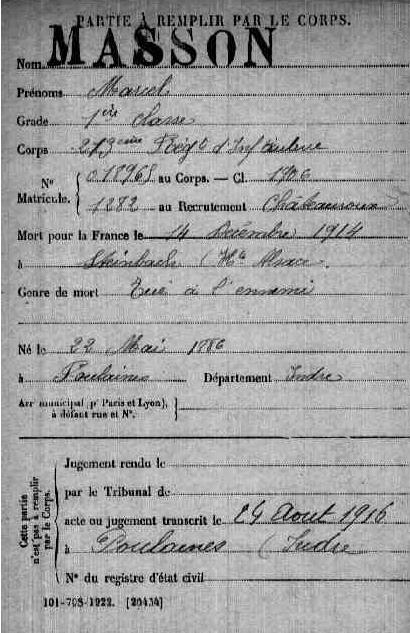 PARTIE À REMPLIR PAR LE CORPS.
Nom MASSON
Prénoms Marcel
Grade 1ère classe
Corps 213eme Régt d'Infanterie
N° Matricule. { 018968 au Corps. — Cl. 1906
1282 au Recrutement Châteauroux
Mort pour la France le 14 Décembre 1914
à Steinbach (Hte Alsace
Genre de mort Tué à l'ennemi
Né le 22 Mai 1886
à Poulaines Département Indre
Arr municipal (pr Paris et Lyon),
à défaut rue et N°.
Cette partie n'est pas à remplir par le Corps.
Jugement rendu le
par le Tribunal de
acte ou jugement transcrit le 24 Aout 1916
à Poulaines (Indre
N° du registre d'état civil
101-708-1922. [20434]